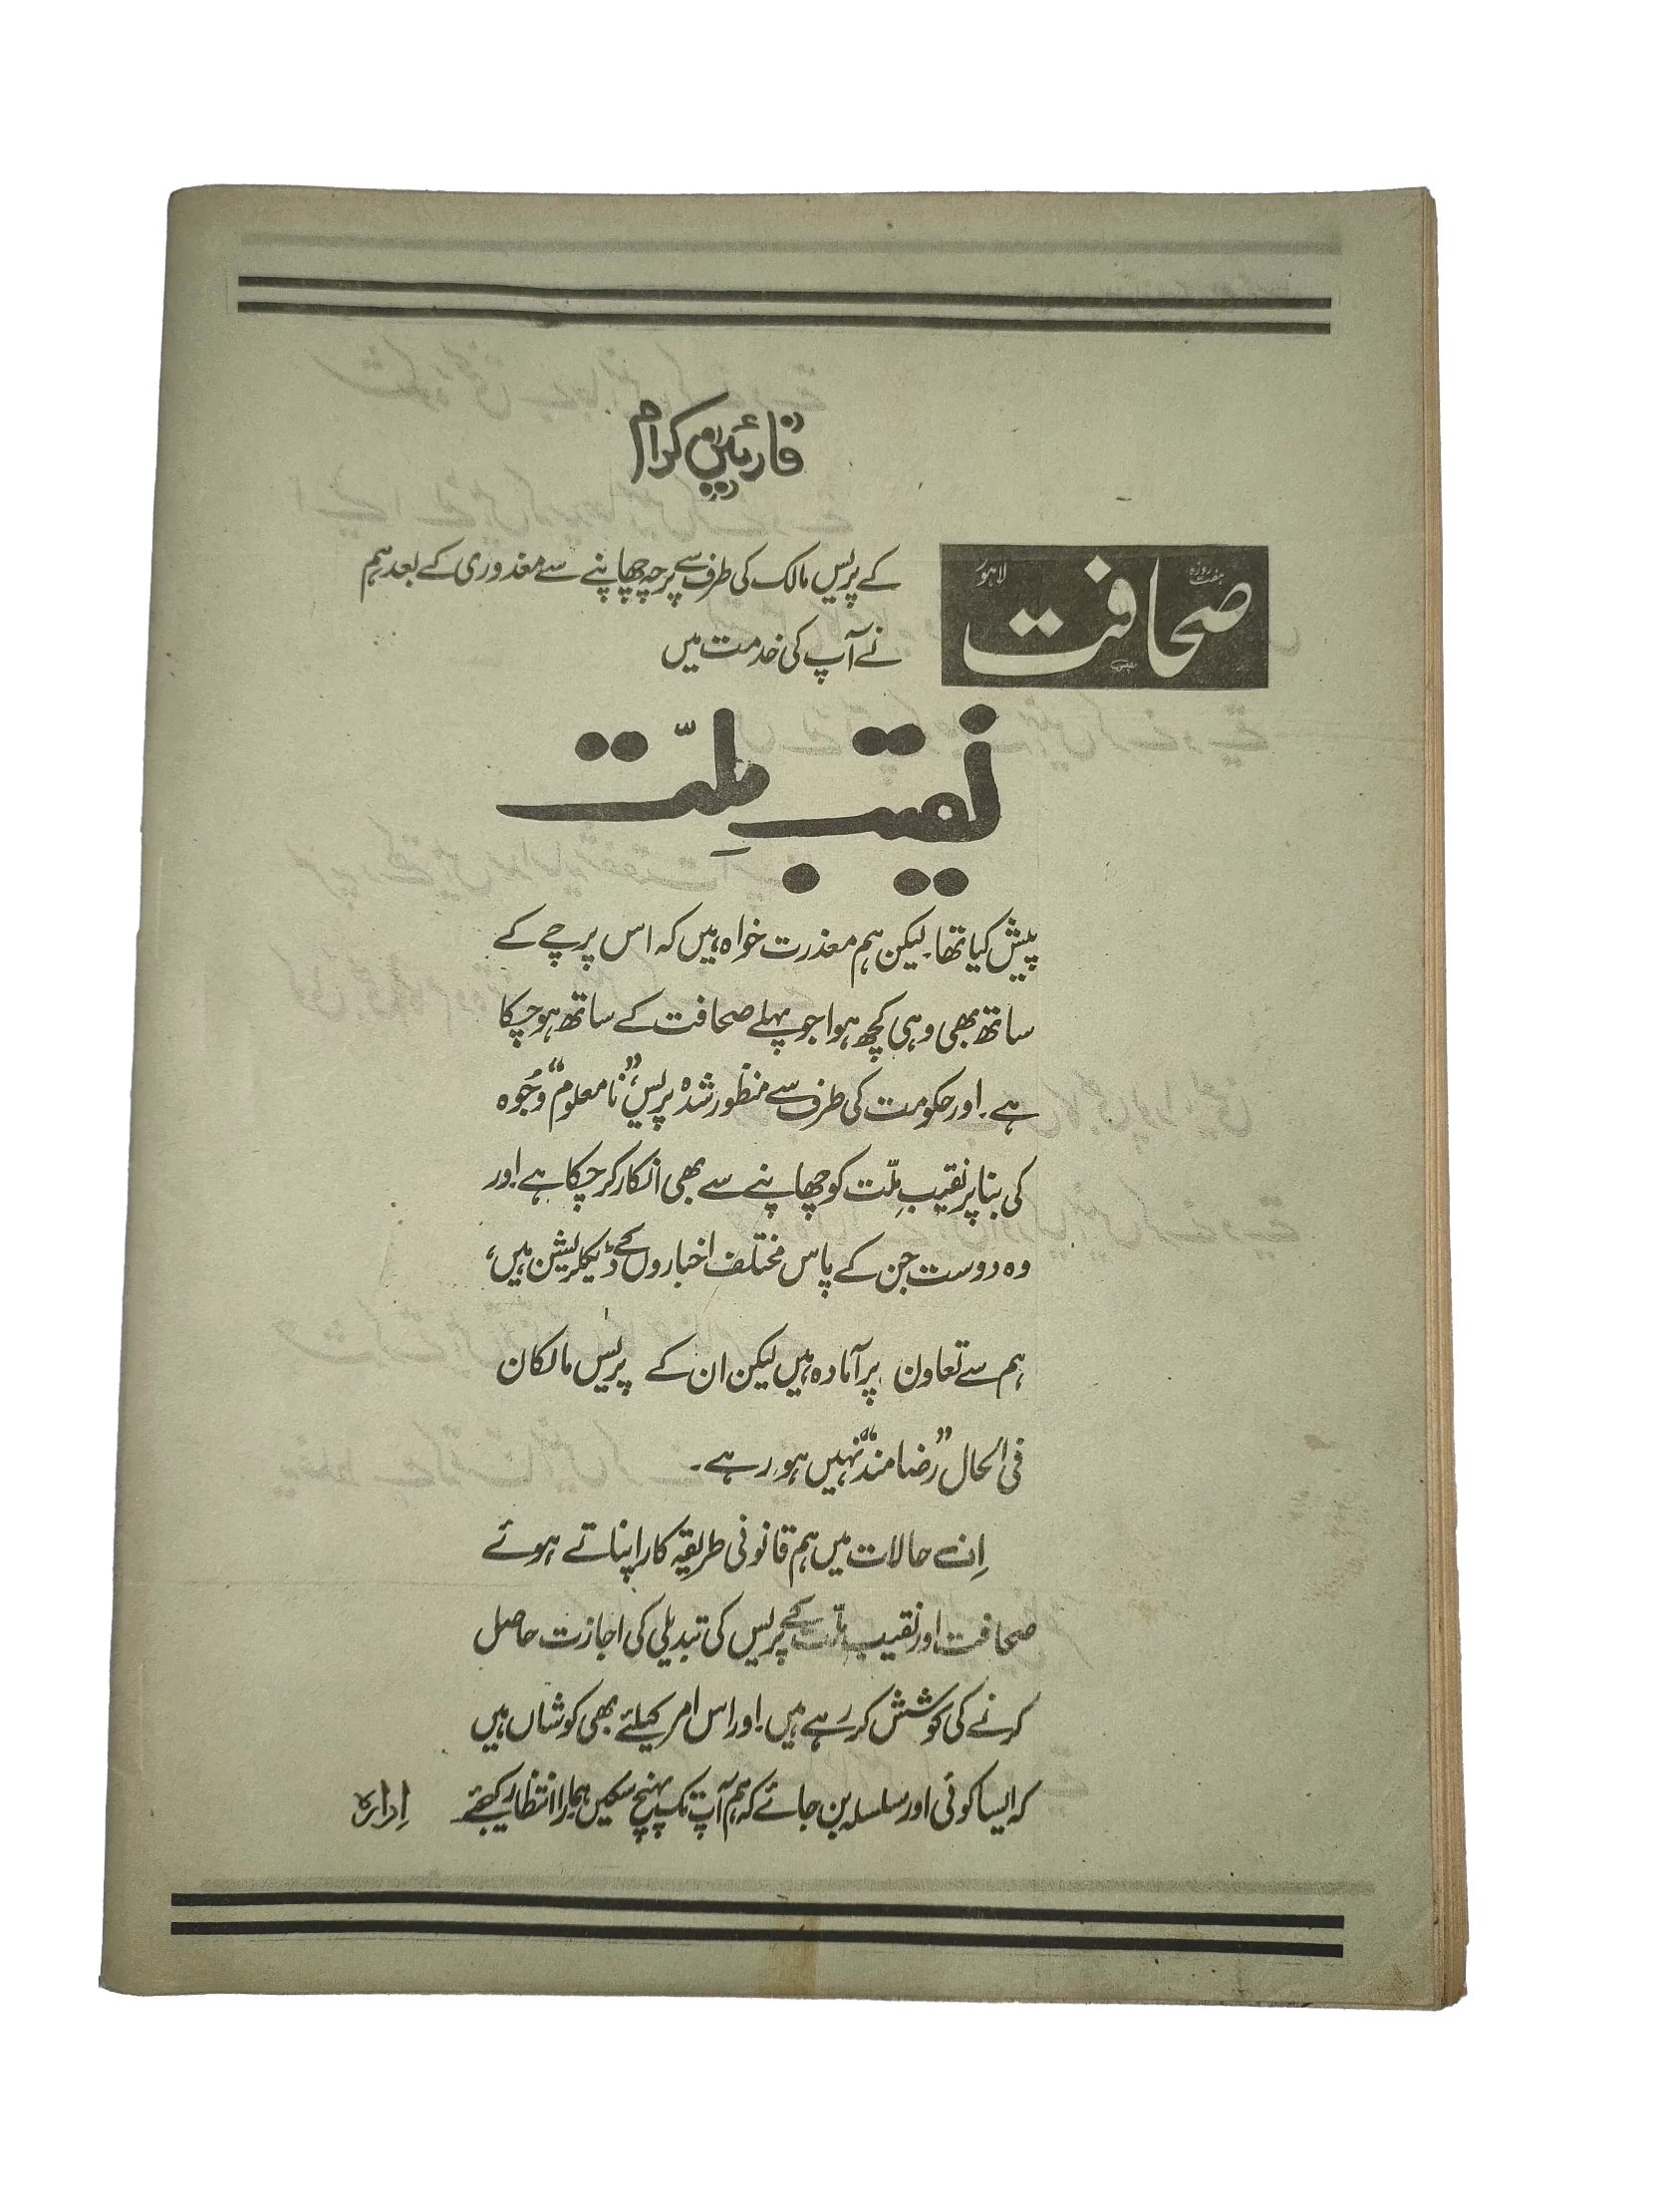 قارئینِ کرام
ہفت روزہ صحافت لاہور کے پریس مالک کی طرف سے پرچہ چھاپنے سے معذوری کے بعد ہم
نے آپ کی خدمت میں
نقیبِ ملّت
پیش کیا تھا۔ لیکن ہم معذرت خواہ ہیں کہ اس پرچے کے
ساتھ بھی وہی کچھ ہوا جو پہلے صحافت کے ساتھ ہو چکا
ہے۔ اور حکومت کی طرف سے منظور شدہ پریس، ”نامعلوم“ وجُوہ
کی بنا پر نقیبِ ملّت کو چھاپنے سے بھی انکار کر چکا ہے۔ اور
وہ دوست جن کے پاس مختلف اخباروں کے ڈیکلریشن ہیں،
ہم سے تعاون پر آمادہ ہیں لیکن ان کے پریس مالکان
فی الحال ”رضامند“ نہیں ہو رہے۔
اِن حالات میں ہم قانونی طریقہ کار اپناتے ہوئے
صحافت اور نقیب ملّت کے پریس کی تبدیلی کی اجازت حاصل
کرنے کی کوشش کر رہے ہیں۔ اور اس امر کیلئے بھی کوشاں ہیں
کہ ایسا کوئی اور سلسلہ بن جائے کہ ہم آپ تک پہنچ سکیں ہمارا انتظار کیجئے
اِدارہ